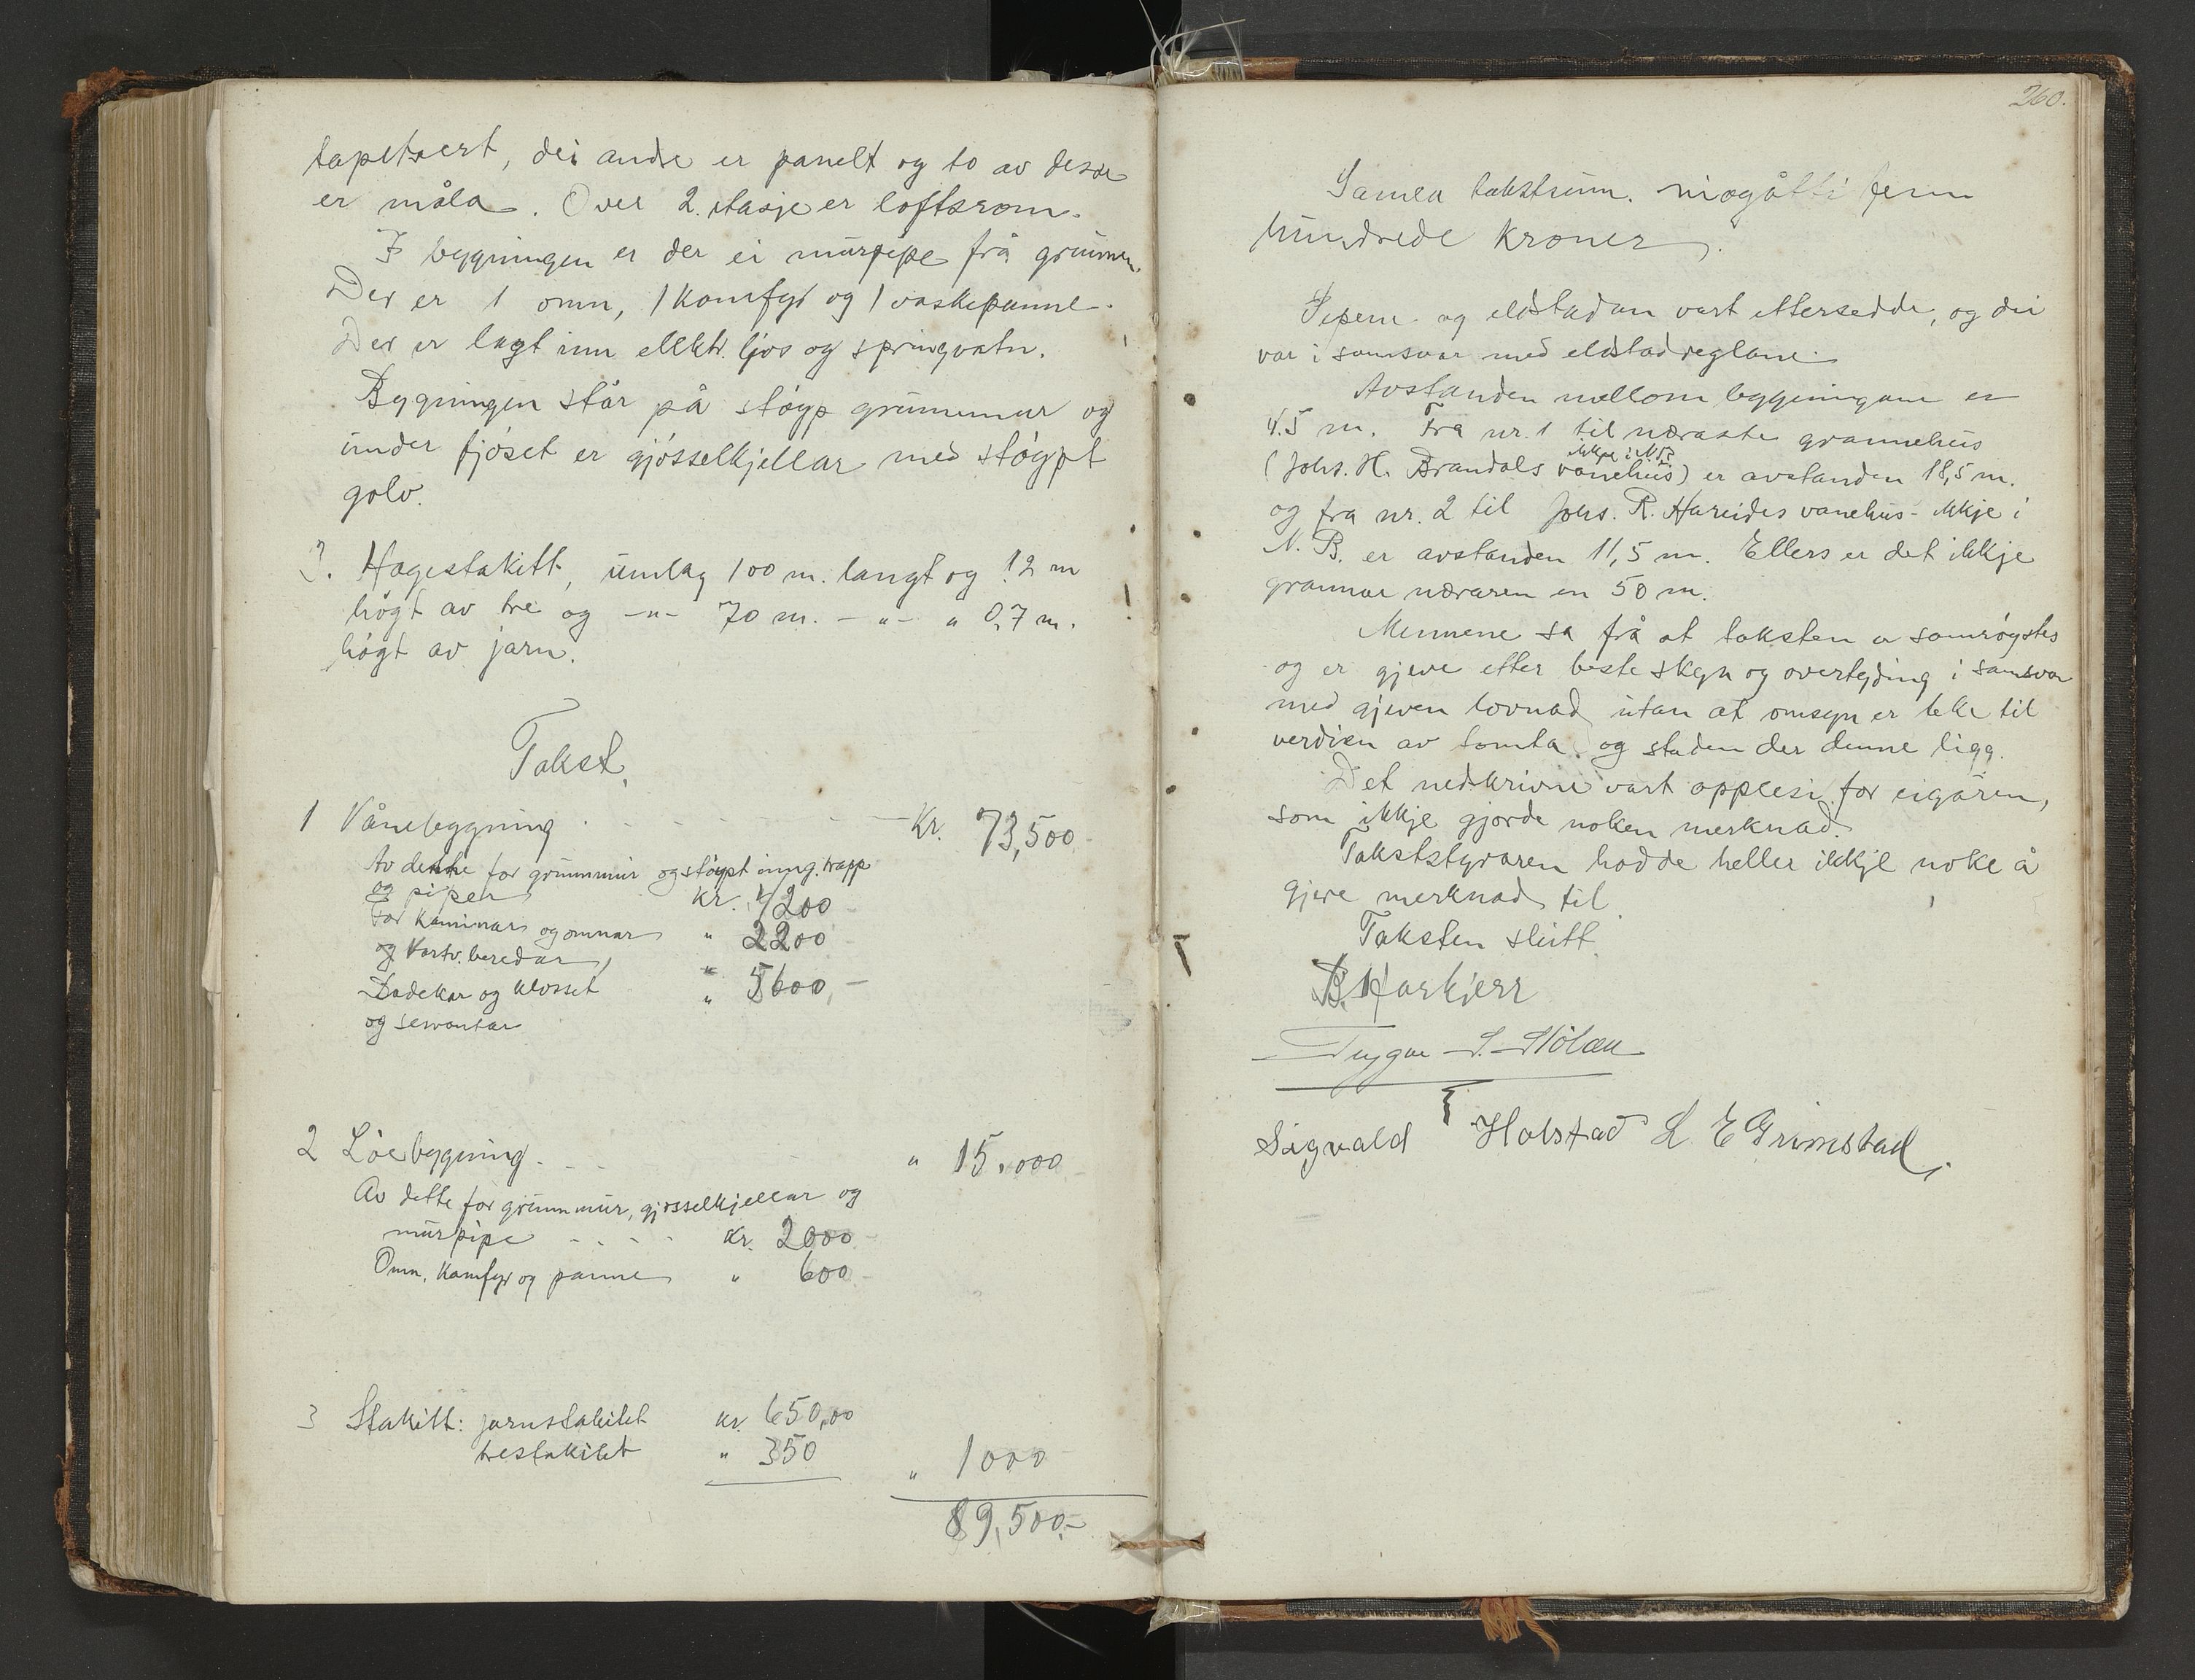 tapetsert, dei andre er panelt og to av desse
er måla. Over 2. etasje er loftsrom.
I bygningen er der ei murpipe frå grunnen.
Der er 1 omn, 1 komfyr og 1 vaskepanne.
Der er lagt inn elektr. ljos og springvatn.
Bygningen står på støyp grunnmur og
under fjøset er gjødselkjellar med støypt
golv.
3. Hagestakitt, umlag 100 m. langt og 1.2 m
høgt av tre og -"- 70 m. -"- " 0,7 m.
høgt av jarn.
Takst.
1 Vånebygning . - - - - - - Kr. 73,500.-
Av dette for grunnmur og støypt inng. trapp
og piper Kr. 4200 -
For kaminar og omnar " 2200
og Vartv. beredar, "
Badekar og klosset " 5600,-
og servantar
2 Løebygning. - - - " 15.000.-
Av dette for grunnmur, gjødselkjellar og
murpipe - - - - Kr. 2000.-
Omn, Komfyr og panne " 600.-
3 Stakitt: jarnstakitet kr. 650,00
trestakitet " 350
" 1000 -
89,500.-
260.
Samla takstsum. niogåtti fem
hundrede kroner.
Pipene og eldstadan vart ettersedde, og dei
var i samsvar med eldstadreglane.
Avstanden mellom bygningane er
4.5 m. Fra nr. 1 til næraste grannehus
ikkje i N.B.
(Johs. H. Brandals vånehus) er avstanden 18,5 m.
og fra nr. 2 til Johs. R. Hareides vanehus - ikkje i
N. B. er avstanden 11,5 m. Ellers er det ikkje
grannar næraren en 50 m.
Mennene sa frå at taksten er samrøystes
og er gjeve etter beste skyn og overtyding i samsvar
med gjeven lovnad utan at omsyn er teke til
verdien av tomta og staden der denne ligg.
Det nedskrivne vart opplesi for eigaren,
som ikkje gjorde noken merknad.
Takststyraren hadde heller ikkje noke å
gjere merknad til.
Taksten slutt.
B. Harkjerr
Trygve S. Stölan
Sigvald Holstad L E Grimstad,